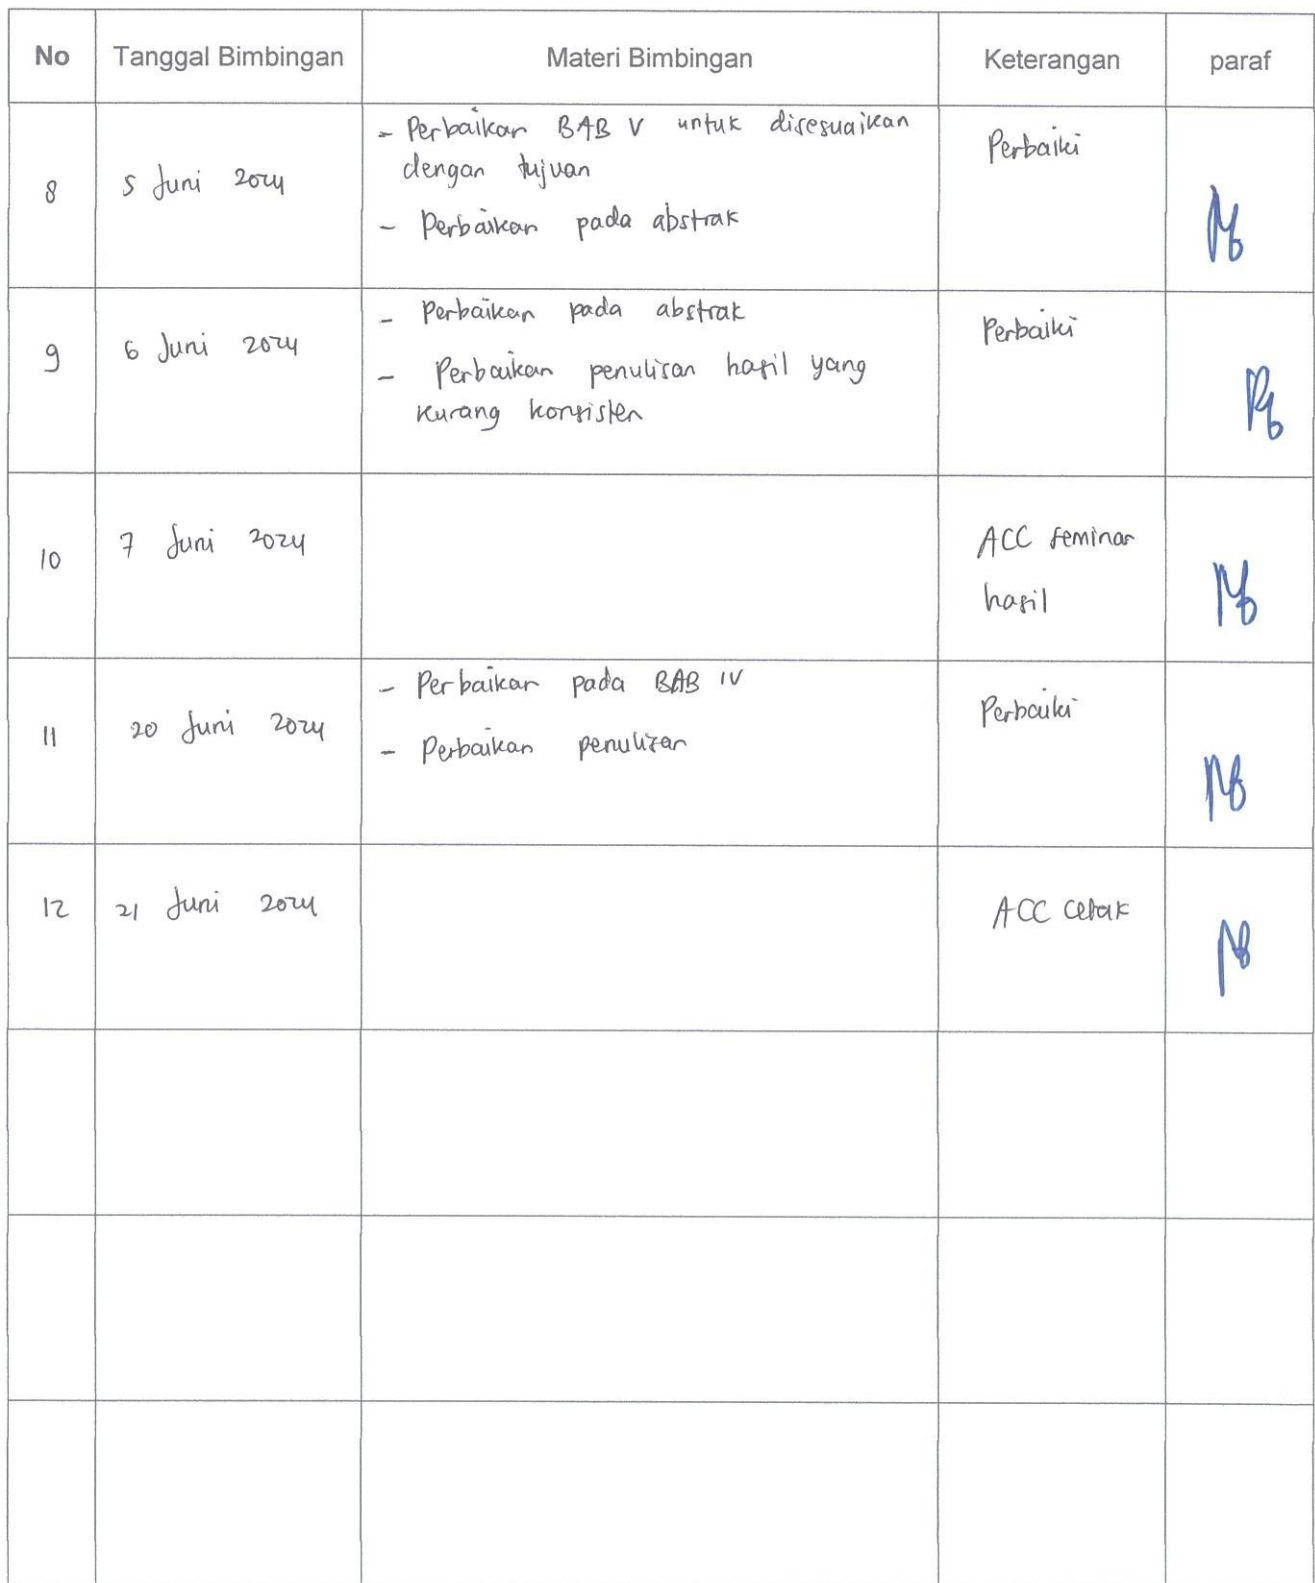 No Tanggal Bimbingan Materi Bimbingan Keterangan paraf
8 5 Juni 2024 - Perbaikan BAB V untuk disesuaikan Perbaiki
dengan tujuan
- Perbaikan pada abstrak
9 6 Juni 2024 - Perbaikan pada abstrak Perbaiki
- Perbaikan penulisan hasil yang
kurang konsisten
10 7 Juni 2024 ACC seminar
hasil
11 20 Juni 2024 - Perbaikan pada BAB IV Perbaiki
- Perbaikan penulisan
12 21 Juni 2024 ACC cetak